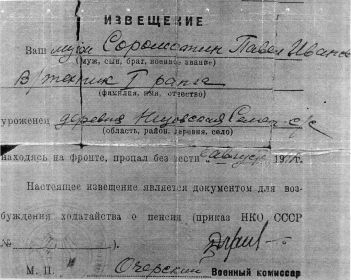 ИЗВЕЩЕНИЕ
Ваш муж Соромотин Павел Иванов
(муж, сын, брат, военное звание)
В/техник I ранга
(фамилия, имя, отчество)
уроженец деревня с/с
(область, район, деревня, село)
находясь на фронте, пропал без вести август 194
Настоящее извещение является документом для воз-
буждения ходатайства о пенсии (приказ НКО СССР
№ ).
М. П. Очерский Военный комиссар